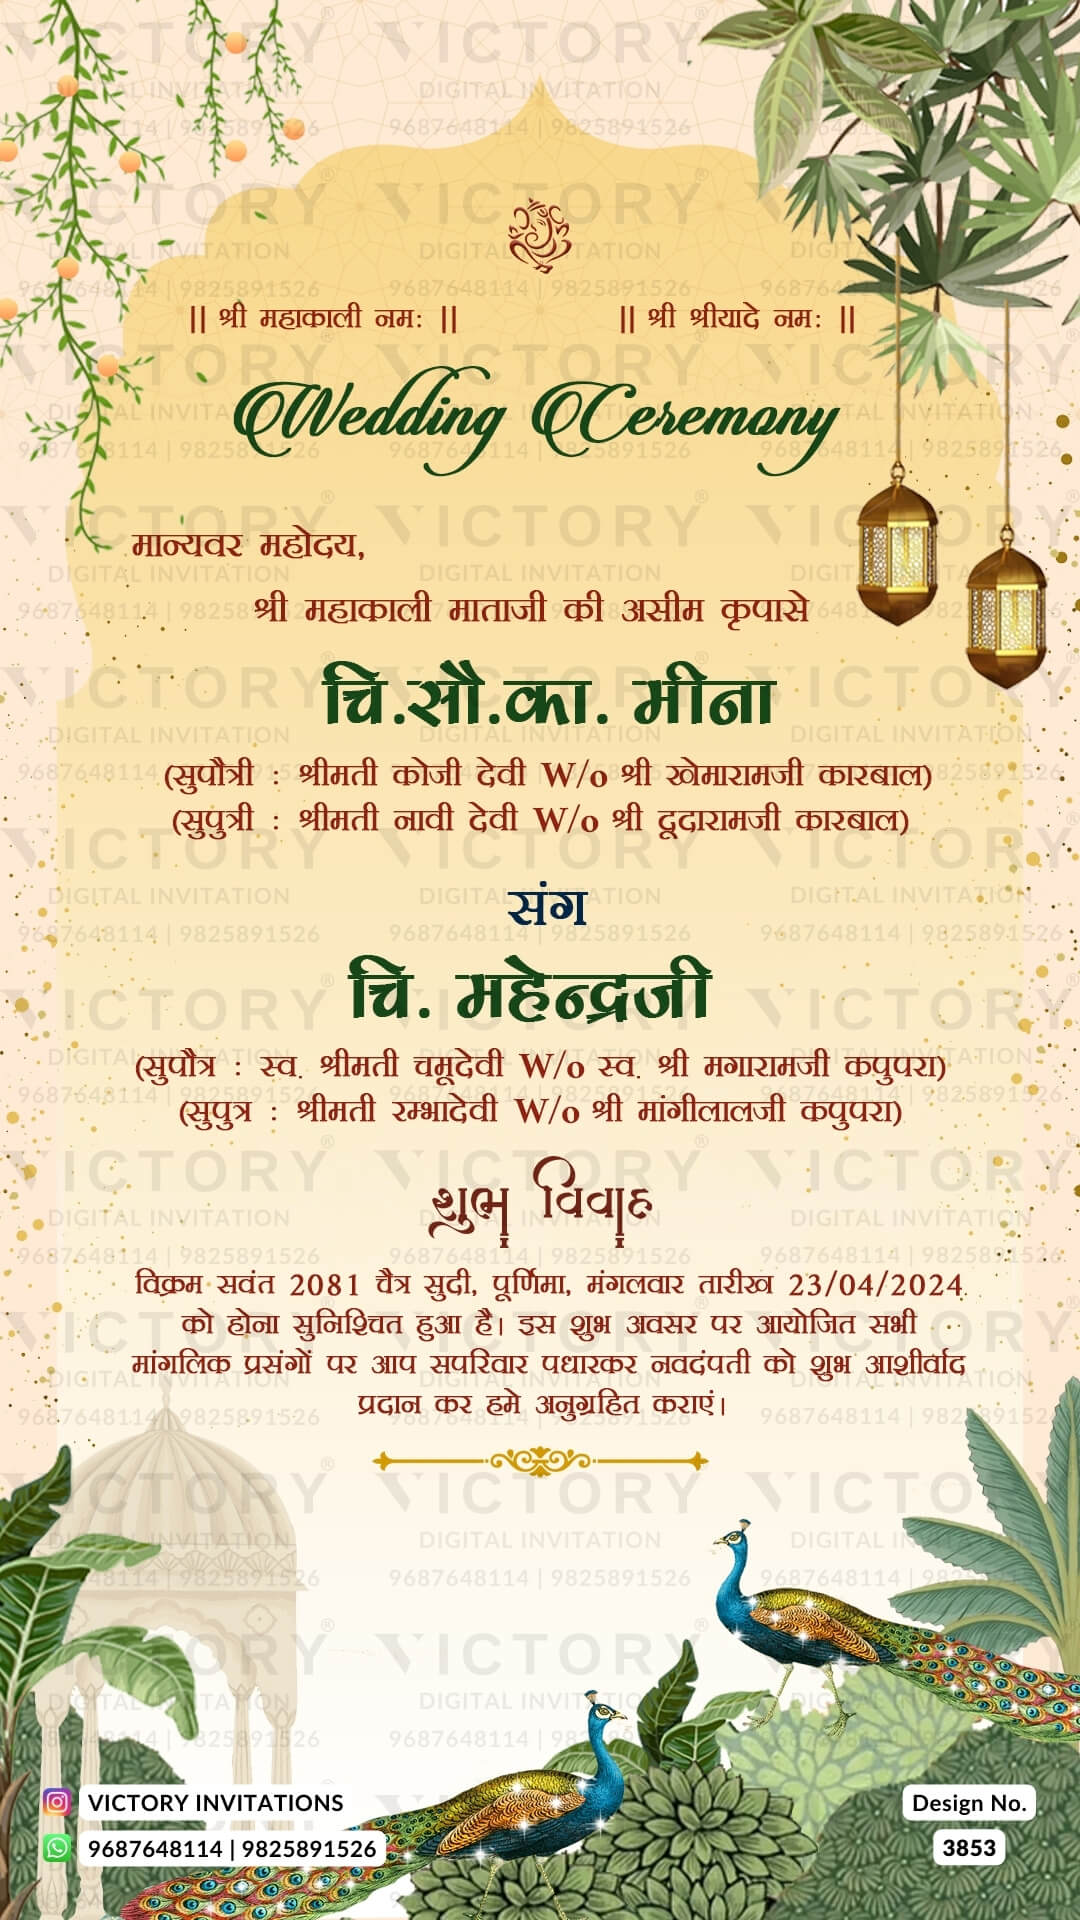 || श्री महाकाली नमः || || श्री श्रीयादे नमः ||
Wedding Ceremony
मान्यवर महोदय,
श्री महाकाली माताजी की असीम कृपासे
चि.सौ.का. मीना
(सुपौत्री : श्रीमती कोजी देवी W/o श्री खेमारामजी कारबाल)
(सुपुत्री : श्रीमती नावी देवी W/o श्री दूदारामजी कारबाल)
संग
चि. महेन्द्रजी
(सुपौत्र : स्व. श्रीमती चमूदेवी W/o स्व. श्री मगारामजी कपुपरा)
(सुपुत्र : श्रीमती रम्भादेवी W/o श्री मांगीलालजी कपुपरा)
शुभ विवाह
विक्रम सवंत 2081 चैत्र सुदी, पूर्णिमा, मंगलवार तारीख 23/04/2024
को होना सुनिश्चित हुआ है। इस शुभ अवसर पर आयोजित सभी
मांगलिक प्रसंगों पर आप सपरिवार पधारकर नवदंपती को शुभ आशीर्वाद
प्रदान कर हमे अनुग्रहित कराएं।
VICTORY INVITATIONS
9687648114 | 9825891526
Design No.
3853
VICTORY®
DIGITAL INVITATION
9687648114 | 9825891526